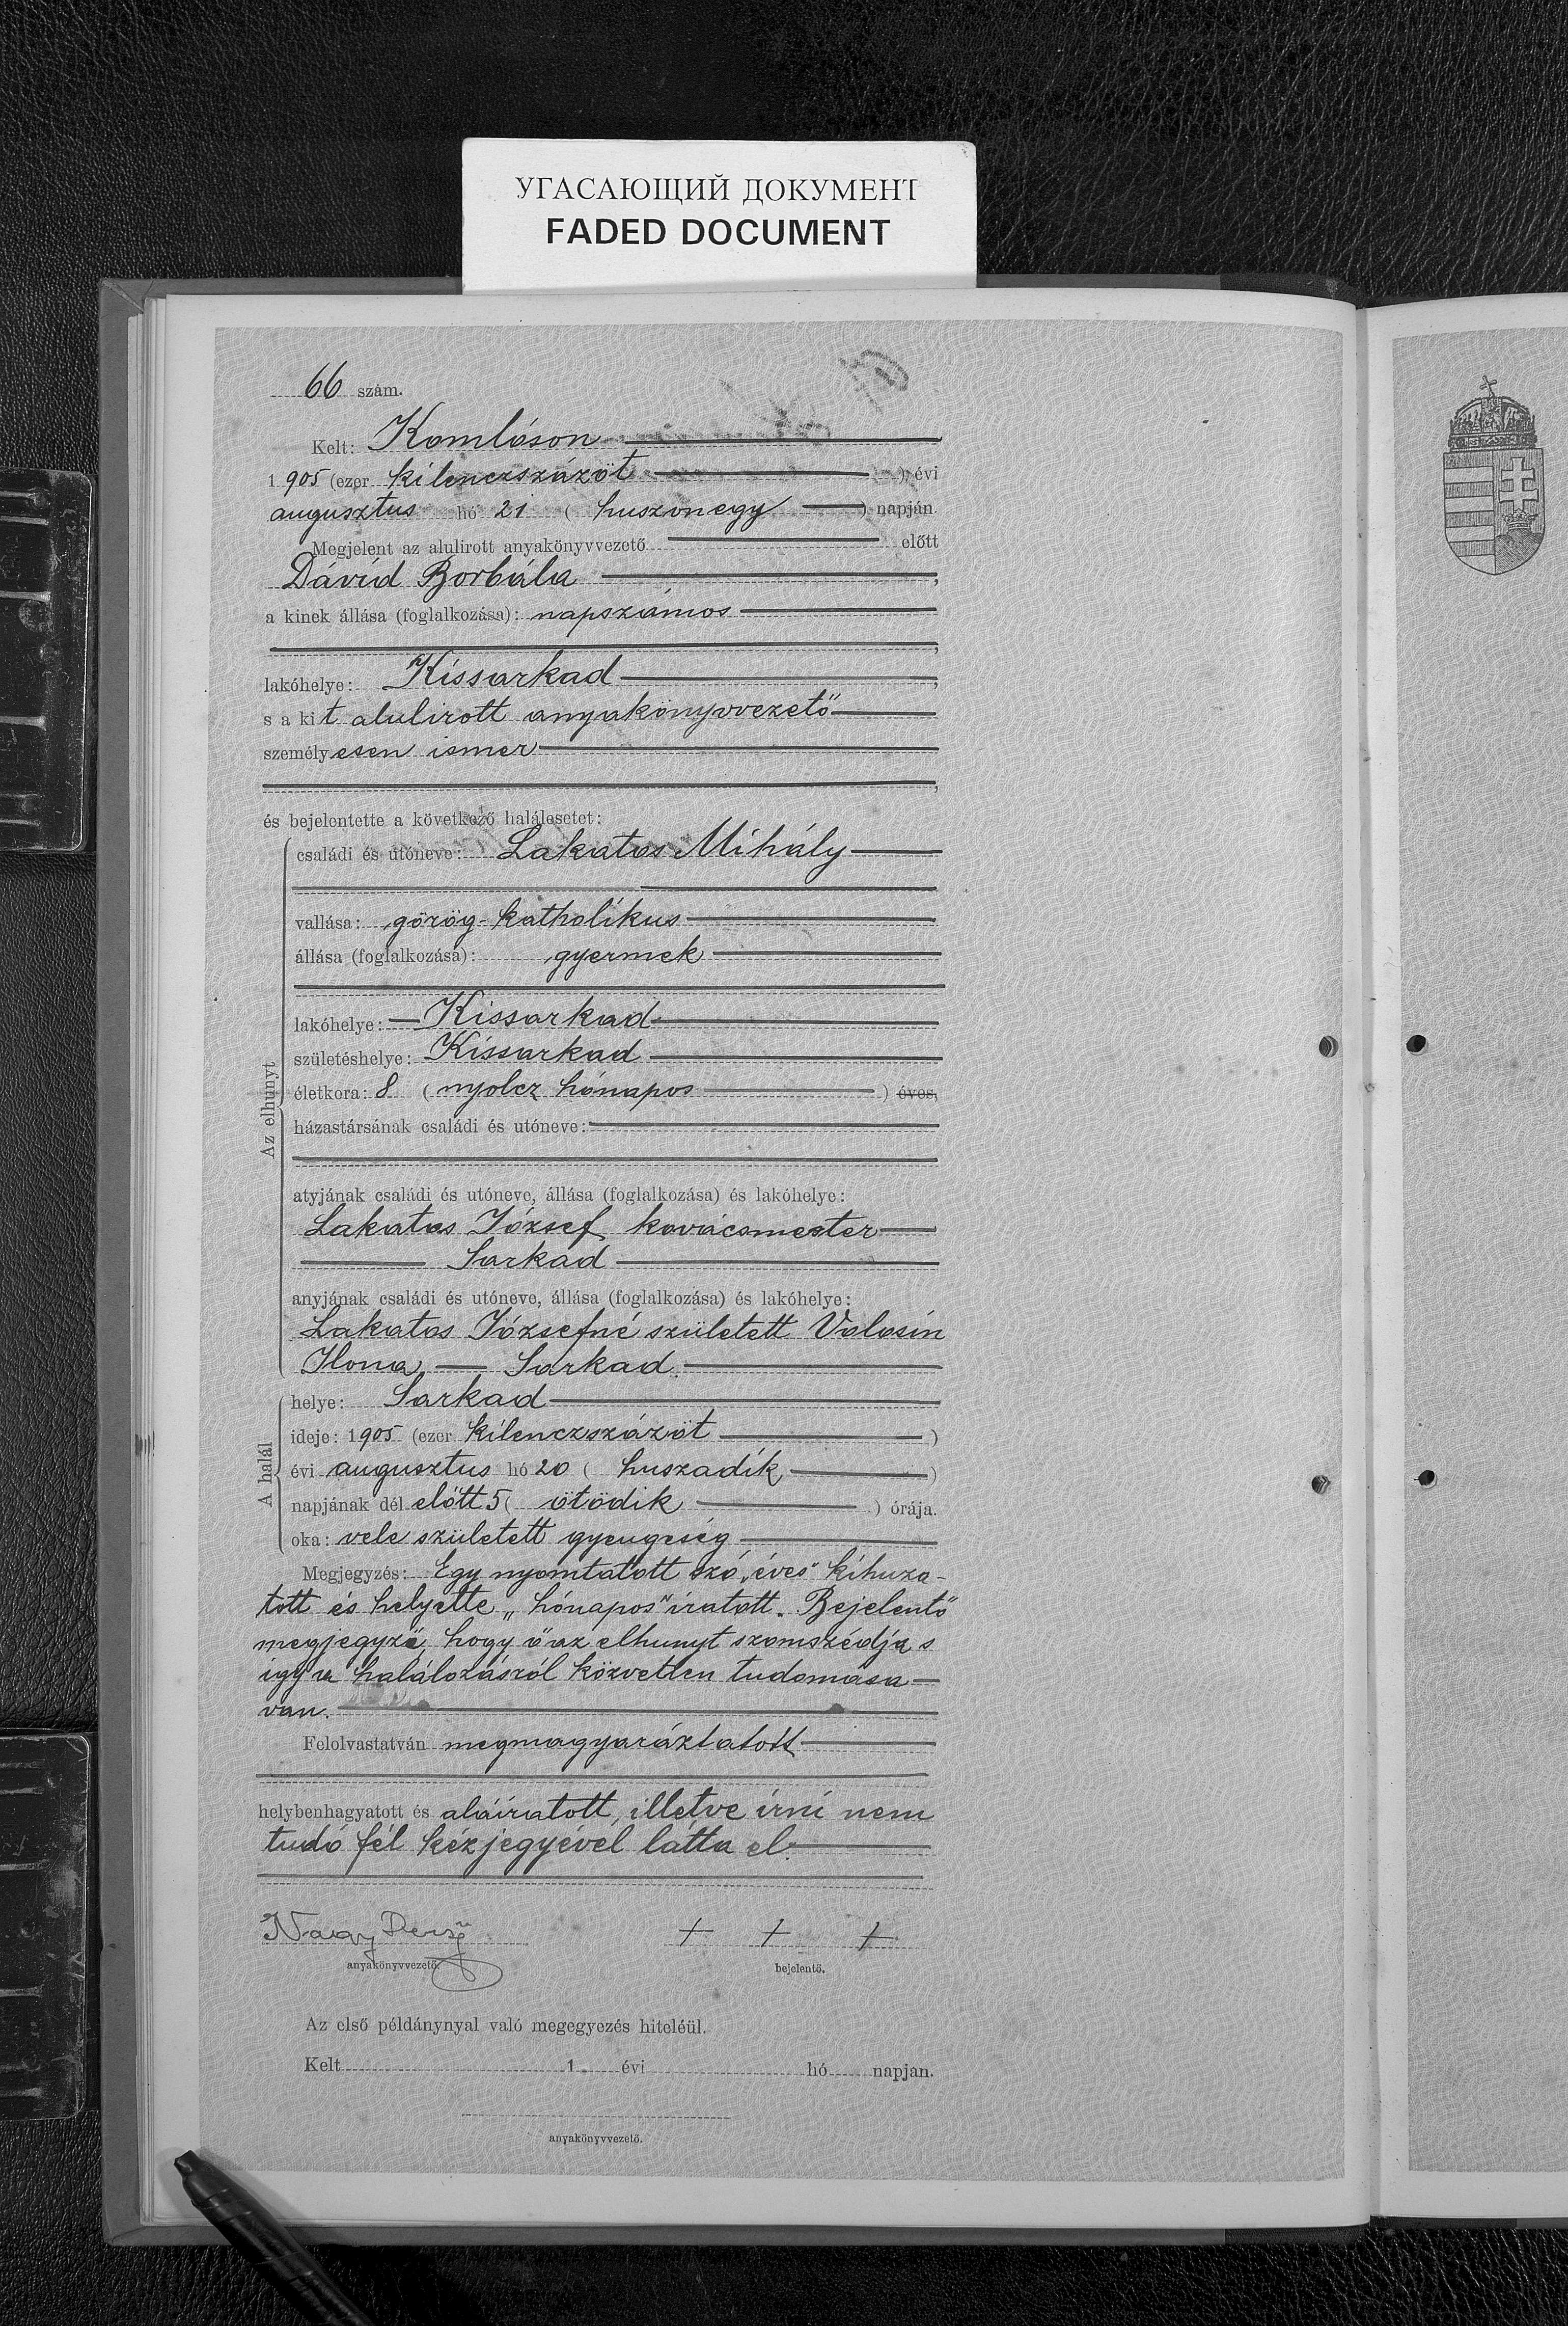 УГАСАЮЩИЙ ДОКУМЕНТ
FADED DOCUMENT
66 szám.
Kelt: Komlóson
1905 (ezer kilenczszázöt ) évi
augusztus hó 21 ( huszonegy ) napján
Megjelent az alulirott anyakönyvvezető előtt
Dávid Borbála ,
a kinek állása (foglalkozása): napszámos
,
lakóhelye: Kissarkad ,
s a kit alulirott anyakönyvvezető
személyesen ismer
,
és bejelentette a következő halálesetet:
családi és utóneve: Lakatos Mihály
vallása: görög-katholikus
állása (foglalkozása): gyermek
lakóhelye: Kissarkad
születéshelye: Kissarkad
életkora: 8 ( nyolcz hónapos ) éves,
házastársának családi és utóneve:
Az elhunyt
atyjának családi és utóneve, állása (foglalkozása) és lakóhelye:
Lakatos József kovácsmester
Sarkad
anyjának családi és utóneve, állása (foglalkozása) és lakóhelye:
Lakatos Józsefné született Volosin
Ilona Sarkad.
helye: Sarkad
ideje: 1905 (ezer kilenczszázöt )
évi augusztus hó 20 ( huszadik )
A halál
napjának dél előtt 5 ( ötödik ) órája.
oka: vele született gyengeség
Megjegyzés: Egy nyomtatott szó „éves" kihuza-
tott és helyette „hónapos" iratott. Bejelentő
megjegyzé, hogy ő az elhunyt szomszédja s
igy a halálozásról közvetlen tudomása
van.
Felolvastatván megmagyaráztatott
helybenhagyatott és aláiratott, illetve irni nem
tudó fél kézjegyével látta el.
Nagy + + +
anyakönyvvezető. bejelentő.
Az első példánynyal való megegyezés hiteléül.
Kelt 1 évi hó napjan.
anyakönyvvezető.